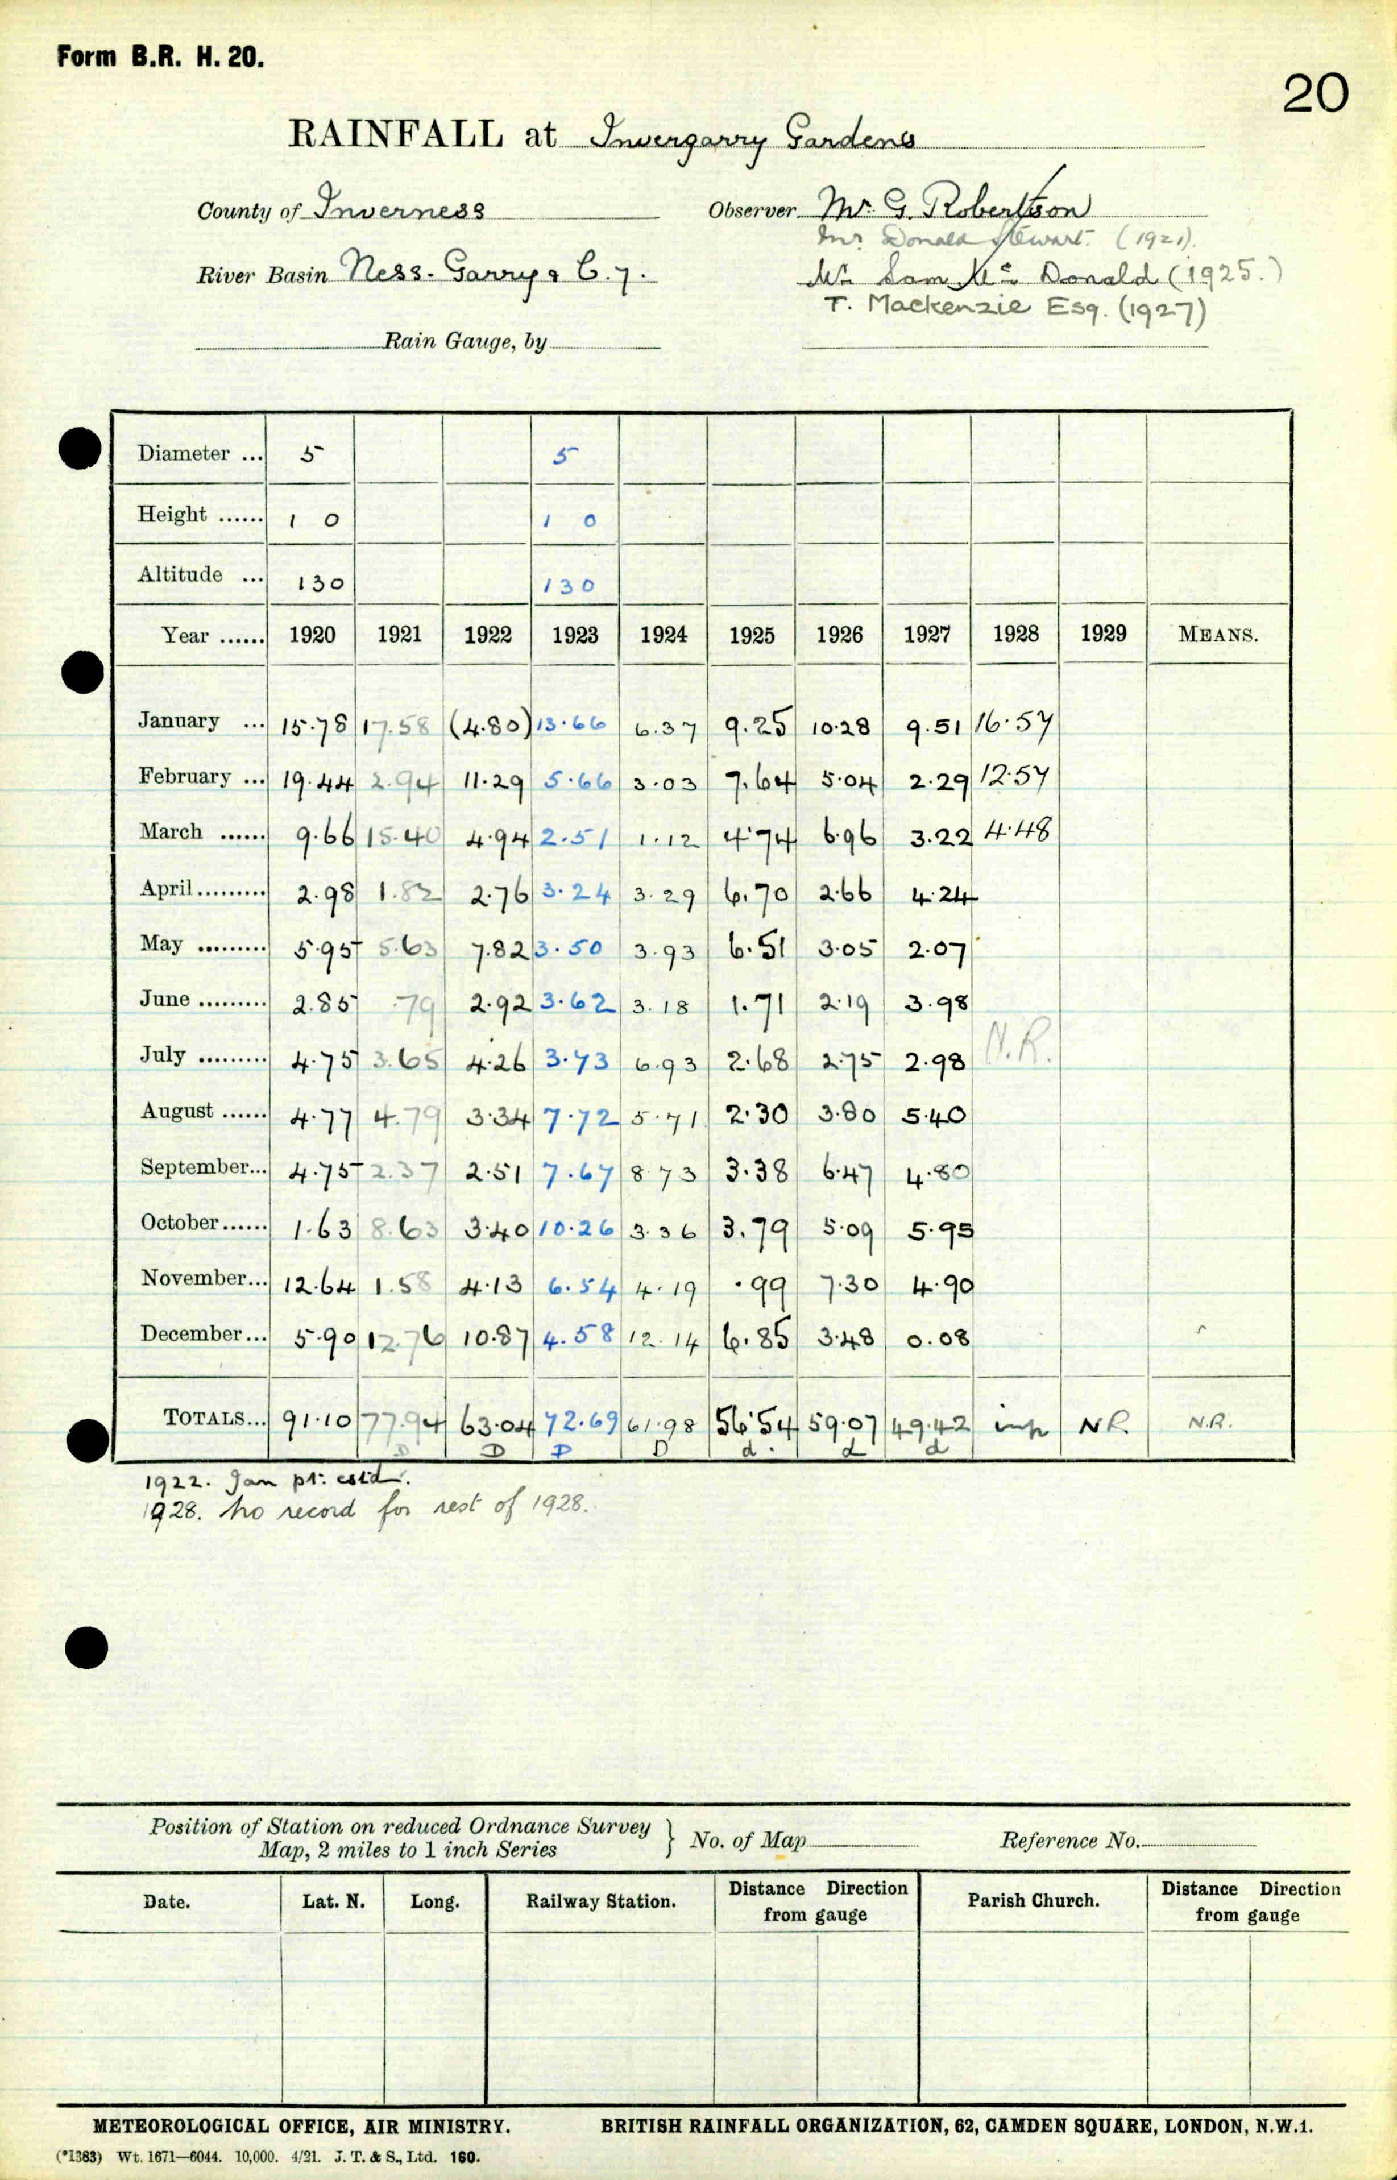 Form B.R. H. 20.
20
RAINFALL at Invergarry Gardens
County of Inverness
Observer Mr. G. Robertson
Mr. Donald Stewart. (1921).
River Basin Ness-Garry & C. 7.
Mr. Sam Mc Donald (1925.)
T. Mackenzie Esq. (1927)
Rain Gauge, by
Diameter ... 5 5
Height ...... 1 0 1 0
Altitude ... 130 130
Year ...... 1920 1921 1922 1923 1924 1925 1926 1927 1928 1929 MEANS.
January ... 15.78 17.58 (4.80) 13.66 6.37 9.25 10.28 9.51 16.57
February ... 19.44 2.94 11.29 5.66 3.03 7.64 5.04 2.29 12.57
March ...... 9.66 15.40 4.94 2.51 1.12 4.74 6.96 3.22 4.48
April......... 2.98 1.82 2.76 3.24 3.29 6.70 2.66 4.24
May ......... 5.95 5.63 7.82 3.50 3.93 6.51 3.05 2.07
June ......... 2.85 .79 2.92 3.62 3.18 1.71 2.19 3.98
July ......... 4.75 3.65 4.26 3.73 6.93 2.68 2.75 2.98 N.R.
August ...... 4.77 4.79 3.34 7.72 5.71 2.30 3.80 5.40
September... 4.75 2.37 2.51 7.67 8 73 3.38 6.47 4.80
October...... 1.63 8.63 3.40 10.26 3.36 3.79 5.09 5.95
November... 12.64 1.58 4.13 6.54 4.19 .99 7.30 4.90
December... 5.90 12.76 10.87 4.58 12.14 6.85 3.48 0.08
TOTALS... 91.10 77.94 63.04 72.69 61.98 56.54 59.07 49.42 imp N.R. N.R.
D D D D d. d d
1922. Jan pt. estd.
1928. no record for rest of 1928.
Position of Station on reduced Ordnance Survey
Map, 2 miles to 1 inch Series } No. of Map Reference No.
Date. Lat. N. Long. Railway Station. Distance Direction from gauge Parish Church. Distance Direction from gauge
METEOROLOGICAL OFFICE, AIR MINISTRY. BRITISH RAINFALL ORGANIZATION, 62, CAMDEN SQUARE, LONDON, N.W.1.
(*1383) Wt. 1671—6044. 10,000. 4/21. J. T. & S., Ltd. 160.